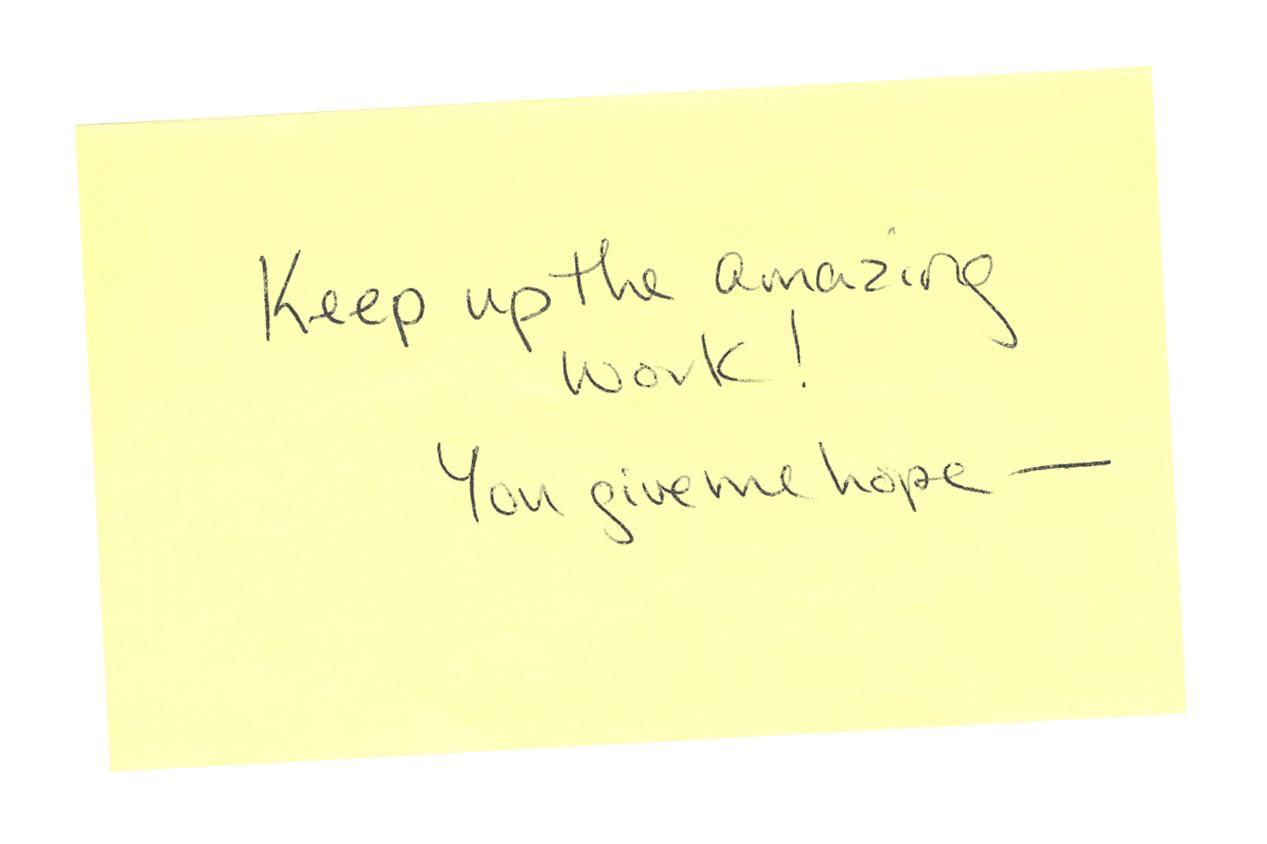 Keep up the amazing
work!
You give me hope —